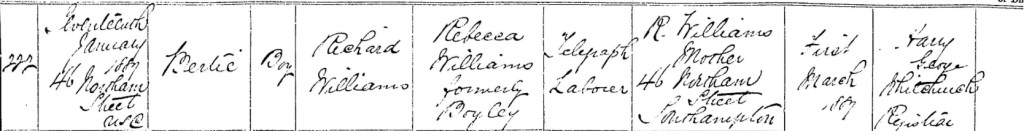 222
Seventeenth
January
1887
46 Northam
Street
USD
Bertie
Boy
Richard
Williams
Rebecca
Williams
formerly
Boyley
Telegraph
Laborer
R. Williams
Mother
46 Northam
Street
Southampton
First
March
1887
Harry
George
Whitchurch
Registrar